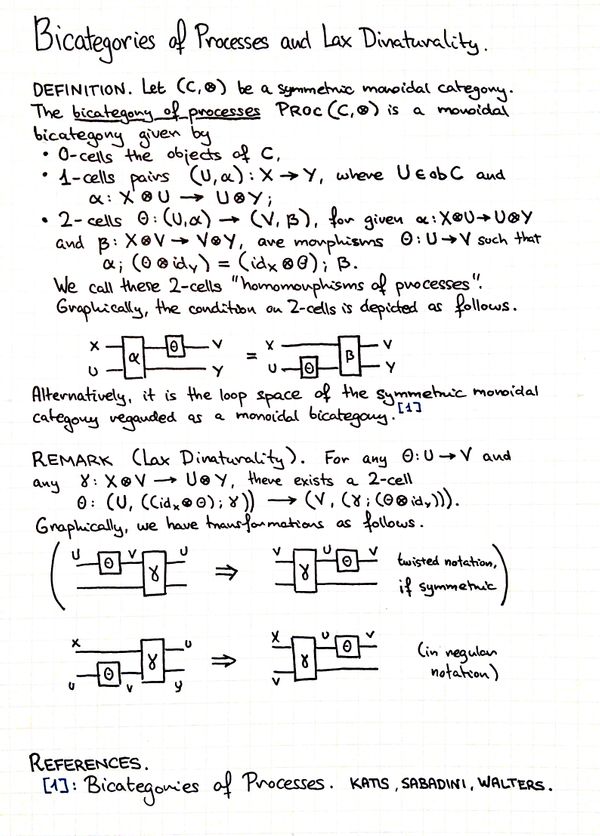 Bicategories of Processes and Lax Dinaturality.
DEFINITION. Let (C,⊗) be a symmetric monoidal category.
The bicategory of processes PROC(C,⊗) is a monoidal
bicategory given by
• 0-cells the objects of C,
• 1-cells pairs (U,α): X → Y, where U ∈ obC and
α: X⊗U → U⊗Y;
• 2-cells θ: (U,α) → (V,β), for given α: X⊗U→U⊗Y
and β: X⊗V → V⊗Y, are morphisms θ: U→V such that
α; (θ⊗id_Y) = (id_X⊗θ); β.
We call these 2-cells "homomorphisms of processes".
Graphically, the condition on 2-cells is depicted as follows.
X α θ V = X β V
U Y U θ Y
Alternatively, it is the loop space of the symmetric monoidal
category regarded as a monoidal bicategory.[1]
REMARK (Lax Dinaturality). For any θ: U→V and
any γ: X⊗V → U⊗Y, there exists a 2-cell
θ: (U, ((id_X⊗θ); γ)) → (V, (γ; (θ⊗id_Y))).
Graphically, we have transformations as follows.
( U θ V γ U ⇒ V γ U θ V twisted notation, if symmetric )
X γ U ⇒ X γ U θ V (in regular
U θ V Y V notation)
REFERENCES.
[1]: Bicategories of Processes. KATIS, SABADINI, WALTERS.